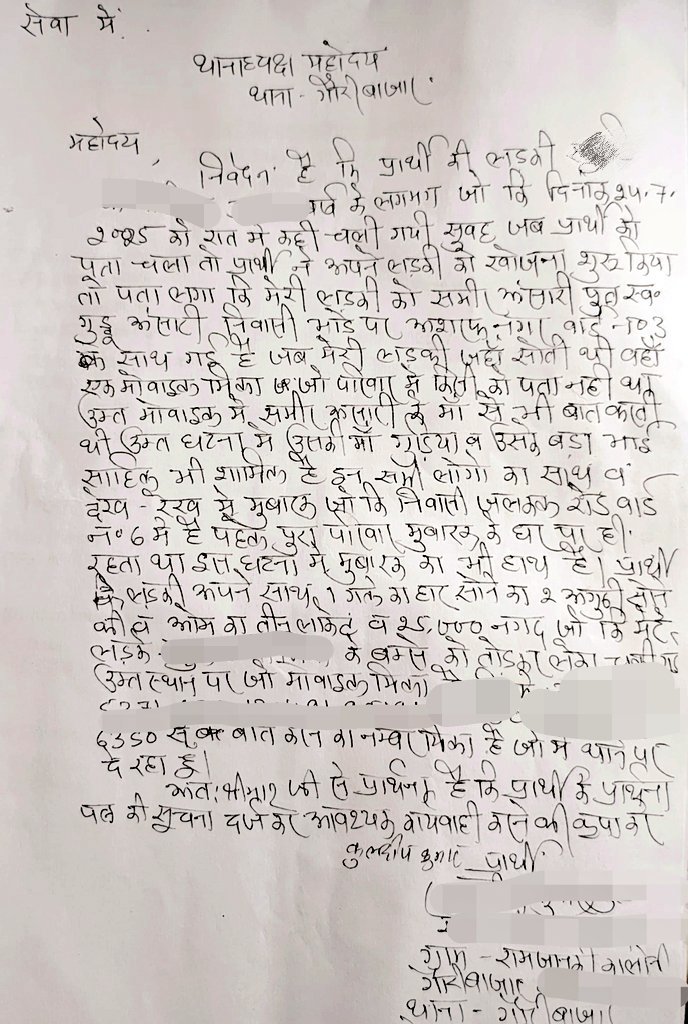 सेवा में,
थानाध्यक्ष महोदय
थाना - गौरीबाजार
महोदय,
निवेदन है कि प्रार्थी की लडकी
के लगभग जो कि दिनांक 24.7.
2025 को रात में कही चली गयी सुवह जब प्रार्थी को
पता चला तो प्रार्थी ने अपने लडकी को खोजना शुरू किया
तो पता लगा कि मेरी लडकी को समीर अंसारी पुत्र स्व०
गुड्डू अंसारी निवासी मोड पर अशरफनगर वार्ड न० 3
के साथ गई है जब मेरी लडकी जहाँ सोती थी वहाँ
एक मोवाइल मिला जो परिवार में किसी को पता नही था
उक्त मोवाइल में समीर अंसारी के माँ से भी बात करती
थी उक्त घटना में उसकी माँ गुड़िया व उसके बडा भाई
साहिल भी शामिल है इन सभी लोगो का साथ व
देख - रेख में मुबारक जो कि निवासी जलकल रोड वार्ड
नं० 6 में है पहले पुरा परिवार मुबारक के घर पर ही
रहता था इस घटना में मुबारक का भी हाथ है। प्रार्थी
के लडकी अपने साथ 1 गले का हार सोने का 2 अंगुठी सोने
की व ओम का तीन लाकेट व 25,000 नगद जो कि मेरे
लडके के बक्से को तोडकर लेकर
उक्त स्थान पर जो मोवाइल मिला
6350 बात करने का नम्बर मिला है जो मै थाने पर
दे रहा हूं।
अतः श्रीमान जी से प्रार्थना है कि प्रार्थी के प्रार्थना
पत्र की सूचना दर्ज कर आवश्यक कार्यवाही करने की कृपा करे
कुलदीप कुमार प्रार्थी
ग्राम - रामजानकी कालोनी
गौरीबाजार
थाना - गौरीबाजार